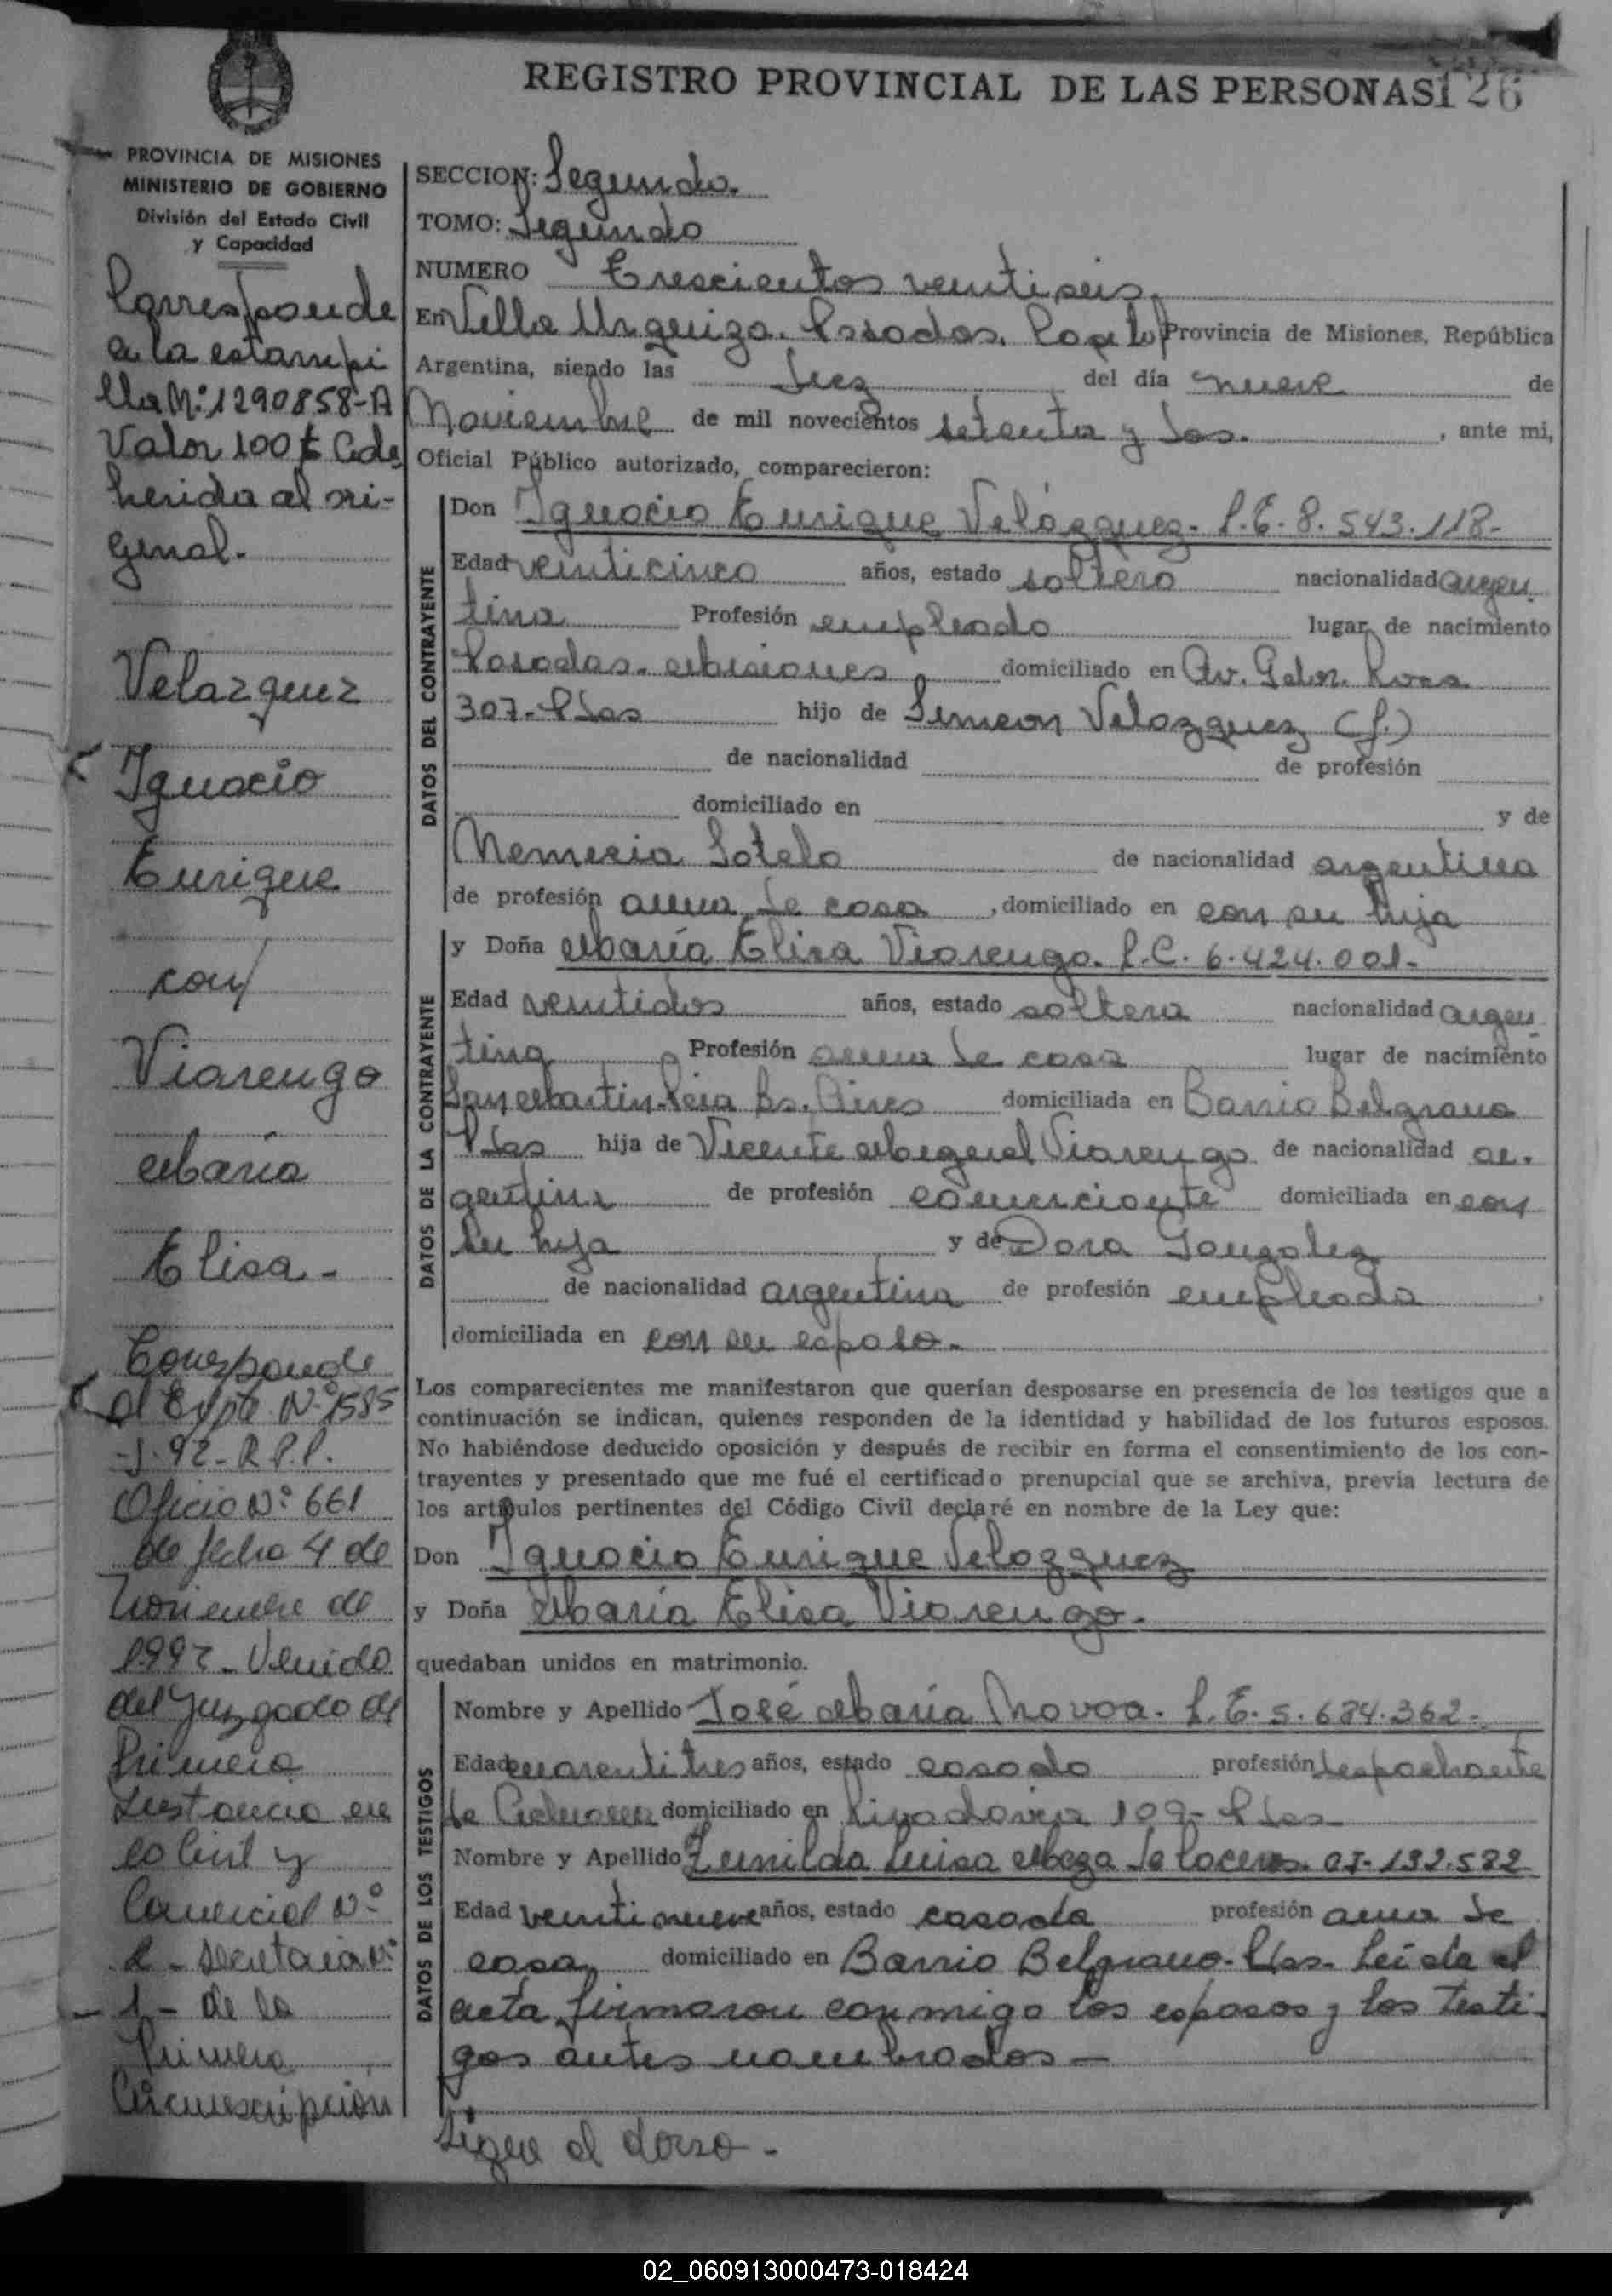 REGISTRO PROVINCIAL DE LAS PERSONAS
126
PROVINCIA DE MISIONES
MINISTERIO DE GOBIERNO
División del Estado Civil
y Capacidad
Corresponde
a la estampi
lla Nº: 1290858-A
Valor 100
herida al ori-
ginal.
Velazquez
Ignacio
Enrique
con
Viarengo
María
Elisa -
Corresponde
al Expte Nº 1585
Oficio Nº 661
de fecha 4 de
Noviembre de
1992 - Venido
del Juzgado de
Primera
Instancia en
lo Civil y
Comercial Nº
2 - Secretaria Nº
- 1 - de la
Primera
Circunscripción
SECCION: Segunda.
TOMO: Segundo
NUMERO Trescientos veintiseis.
En Villa Urquiza. Posadas. Provincia de Misiones, República
Argentina, siendo las diez del día nueve de
Noviembre de mil novecientos setenta y dos. , ante mi,
Oficial Público autorizado, comparecieron:
DATOS DEL CONTRAYENTE
Don Ignacio Enrique Velázquez. L.E. 8.543.118-
Edad veinticinco años, estado soltero nacionalidad argen
tina Profesión empleado lugar de nacimiento
Posadas. Misiones domiciliado en Av. Gdor. Roca
307- Pdas hijo de Simeon Velazquez (f.)
de nacionalidad de profesión
domiciliado en y de
Nemecia Sotelo de nacionalidad argentina
de profesión ama de casa , domiciliado en con su hija
DATOS DE LA CONTRAYENTE
y Doña María Elisa Viarengo. L.C. 6.424.001-
Edad veintidos años, estado soltera nacionalidad argen
tina Profesión ama de casa lugar de nacimiento
San Martin. Pcia Bs. Aires domiciliada en Barrio Belgrano
Pdas hija de Vicente Miguel Viarengo de nacionalidad ar.
gentina de profesión comerciante domiciliada en con
su hija y de Dora Gonzalez
de nacionalidad argentina de profesión empleada
domiciliada en con su esposo.
Los comparecientes me manifestaron que querían desposarse en presencia de los testigos que a
continuación se indican, quienes responden de la identidad y habilidad de los futuros esposos.
No habiéndose deducido oposición y después de recibir en forma el consentimiento de los con-
trayentes y presentado que me fué el certificado prenupcial que se archiva, previa lectura de
los artículos pertinentes del Código Civil declaré en nombre de la Ley que:
Don Ignacio Enrique Velazquez
y Doña María Elisa Viarengo.
quedaban unidos en matrimonio.
DATOS DE LOS TESTIGOS
Nombre y Apellido José María Novoa. L.E. 5.684.362-
Edad cuarentitres años, estado casado profesión despachante
de Aduana domiciliado en Rivadavia 109- Pdas
Nombre y Apellido Zunilda Luisa Meza de CI- 132.582
Edad veintinueve años, estado casada profesión ama de
casa domiciliado en Barrio Belgrano. Pdas. Leída el
acta firmaron conmigo los esposos y los testi-
gos antes nombrados -
Sigue al dorso -
02_060913000473-018424